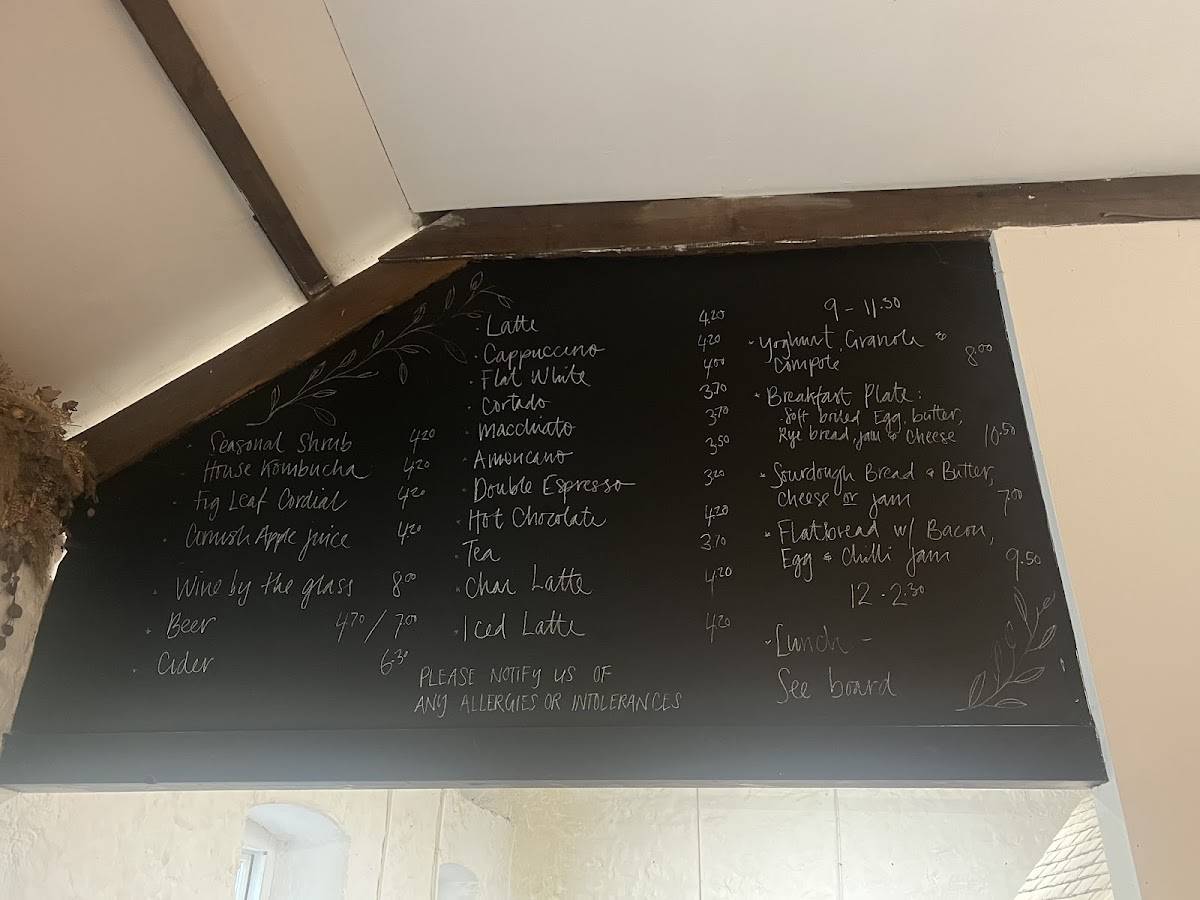 Seasonal Shrub 4.20
House Kombucha 4.20
Fig Leaf Cordial 4.20
Cornish Apple Juice 4.20
Wine by the glass 8.00
Beer 4.70 / 7.00
Cider 6.30
Latte 4.20
Cappuccino 4.20
Flat White 4.00
Cortado 3.70
Macchiato 3.70
Americano 3.50
Double Espresso 3.20
Hot Chocolate 4.20
Tea 3.70
Chai Latte 4.20
Iced Latte 4.20
PLEASE NOTIFY US OF
ANY ALLERGIES OR INTOLERANCES
9 - 11.30
Yoghurt, Granola &
Compote 8.00
Breakfast Plate:
Soft boiled Egg, butter,
Rye bread, jam & Cheese 10.50
Sourdough Bread & Butter,
Cheese or jam 7.00
Flatbread w/ Bacon,
Egg & Chilli Jam 9.50
12 - 2.30
Lunch -
See board